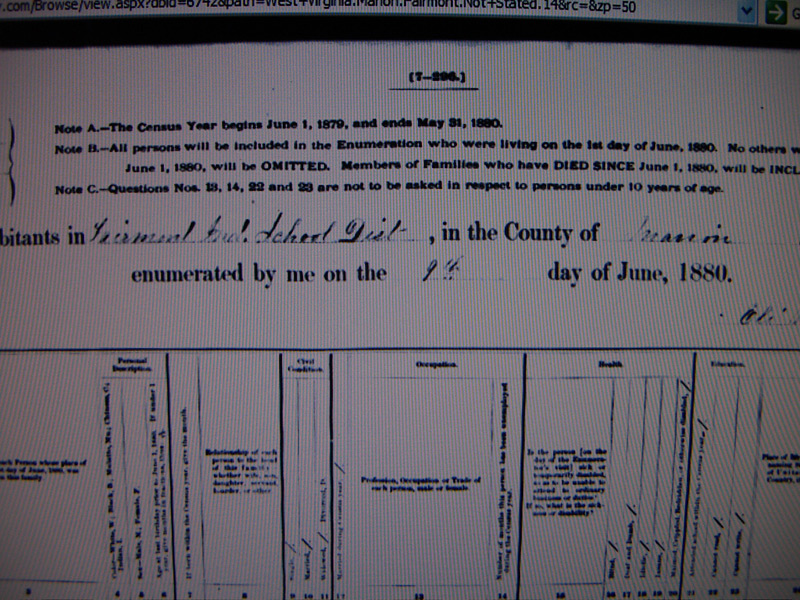 r.com/Browse/view.aspx?dbid=6742&path=West+Virginia.Marion.Fairmont.Not+Stated.14&rc=&zp=50
[7—296.]
Note A.—The Census Year begins June 1, 1879, and ends May 31, 1880.
Note B.—All persons will be included in the Enumeration who were living on the 1st day of June, 1880. No others w
June 1, 1880, will be OMITTED. Members of Families who have DIED SINCE June 1, 1880, will be INCL
Note C.—Questions Nos. 13, 14, 22 and 23 are not to be asked in respect to persons under 10 years of age.
bitants in Fairmont Ind. School Dist , in the County of Marion
enumerated by me on the 9th day of June, 1880.
Personal Description.
Civil Condition.
Occupation.
Health.
Education.
each Person whose place of
day of June, 1880, was
this family.
Color—White, W; Black, B; Mulatto, Mu; Chinese, C;
Indian, I.
Sex—Male, M; Female, F.
Age at last birthday prior to June 1, 1880. If under 1
year, give months in fractions, thus
If born within the Census year, give the month.
Relationship of each
person to the head
of this family—
whether wife, son,
daughter, servant,
boarder, or other
Single, /
Married, /
Widowed, / Divorced, D.
Married during Census year, /
Profession, Occupation or Trade of
each person, male or female.
Number of months this person has been unemployed
during the Census year.
Is the person [on the
day of the Enumera-
tor's visit] sick or
temporarily disabled,
so as to be unable to
attend to ordinary
business or duties?
If so, what is the sick-
ness or disability?
Blind, /
Deaf and Dumb, /
Idiotic, /
Insane, /
Maimed, Crippled, Bedridden, or otherwise disabled, /
Attended school within the Census year, /
Cannot read, /
Cannot write, /
Place of
naming
of Unite
Country,
3 4 5 6 7 8 9 10 11 12 13 14 15 16 17 18 19 20 21 22 23